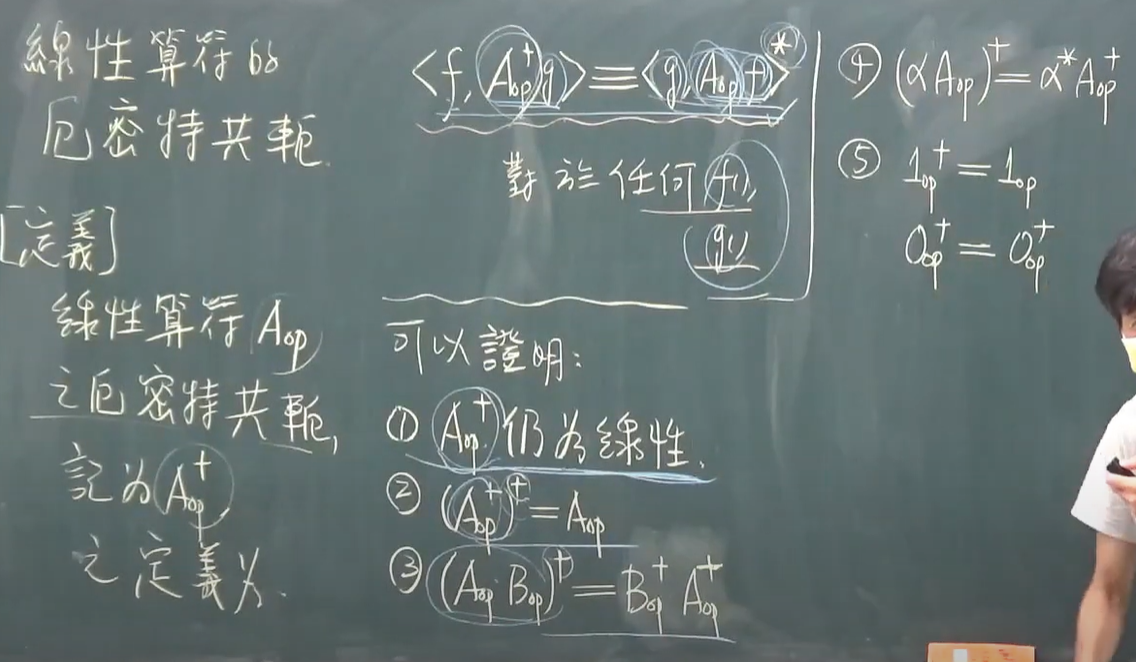 線性算符的
厄密特共軛.
[定義]
線性算符 Aop
之厄密特共軛,
記為 Aop†
之定義為
<f, Aop† g> ≡ <g, Aop f>*
對於任何 f(),
g()
可以證明:
① Aop† 仍為線性.
② (Aop†)† = Aop
③ (Aop Bop)† = Bop† Aop†
④ (αAop)† = α* Aop†
⑤ 1op† = 1op
0op† = 0op†